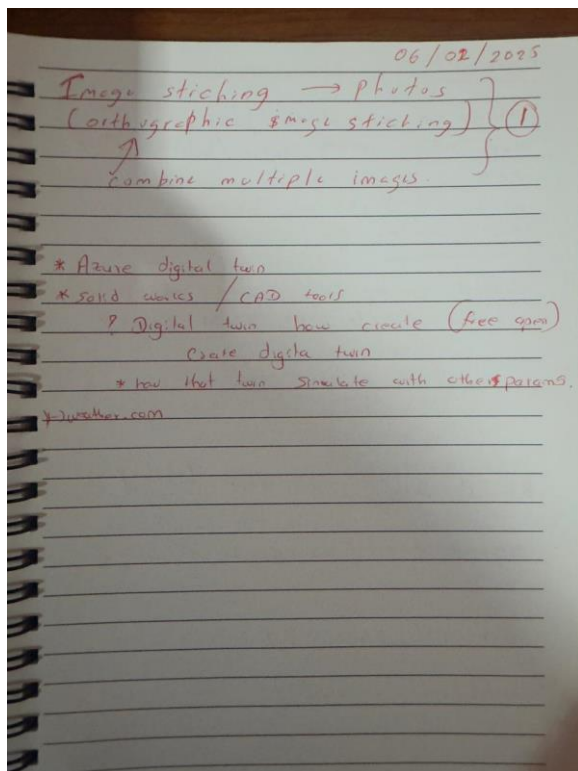 06/02/2025
Image stiching → photos
(orthographic image stiching) } ①
combine multiple images.
* Azure digital twin
* solid works / CAD tools
? Digital twin how create (free open)
Create digita twin
* how that twin simulate with other params.
.com